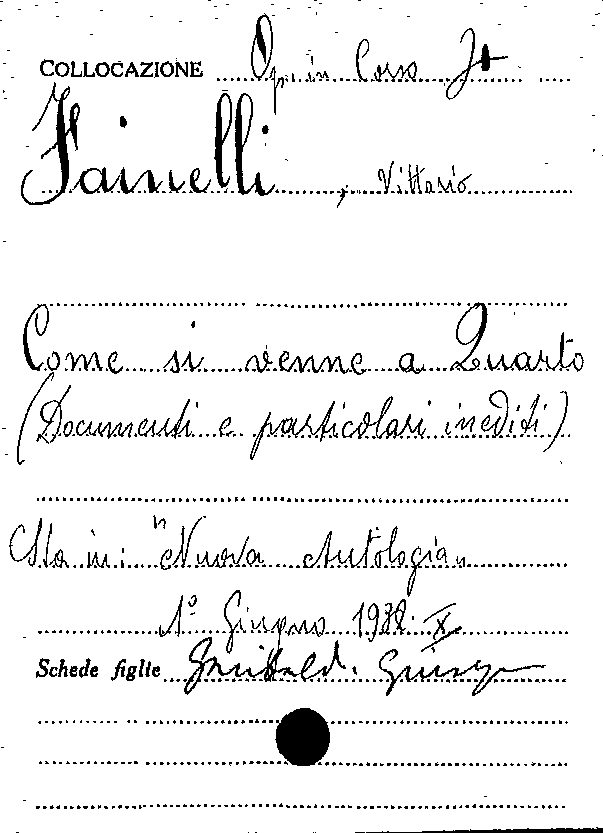 COLLOCAZIONE Op. in Corso It
Fainelli, Vittorio
Come si venne a Quarto
(Documenti e particolari inediti)
Sta in: "Nuova Antologia"
1º Giugno 1932. X
Schede figlie Garibaldi. Giusep